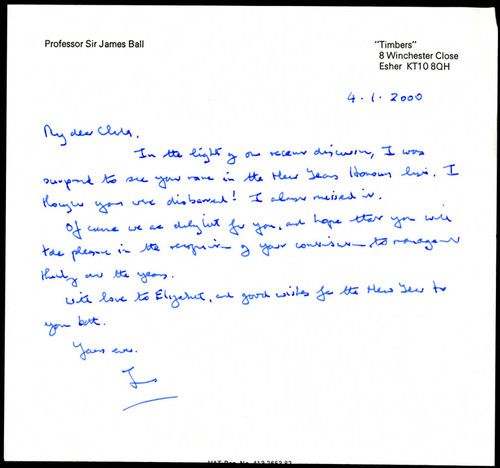 Professor Sir James Ball
"Timbers"
8 Winchester Close
Esher KT10 8QH
4.1.2000
My dear Chris,
In the light of our recent discussion, I was
surprised to see your name in the New Years Honours list. I
thought you were disbarred! I almost missed it.
Of course we are delighted for you, and hope that you will
take pleasure in the recognition of your contribution to management
over the years.
With love to Elizabeth, and good wishes for the New Year to
you both.
Yours ever,